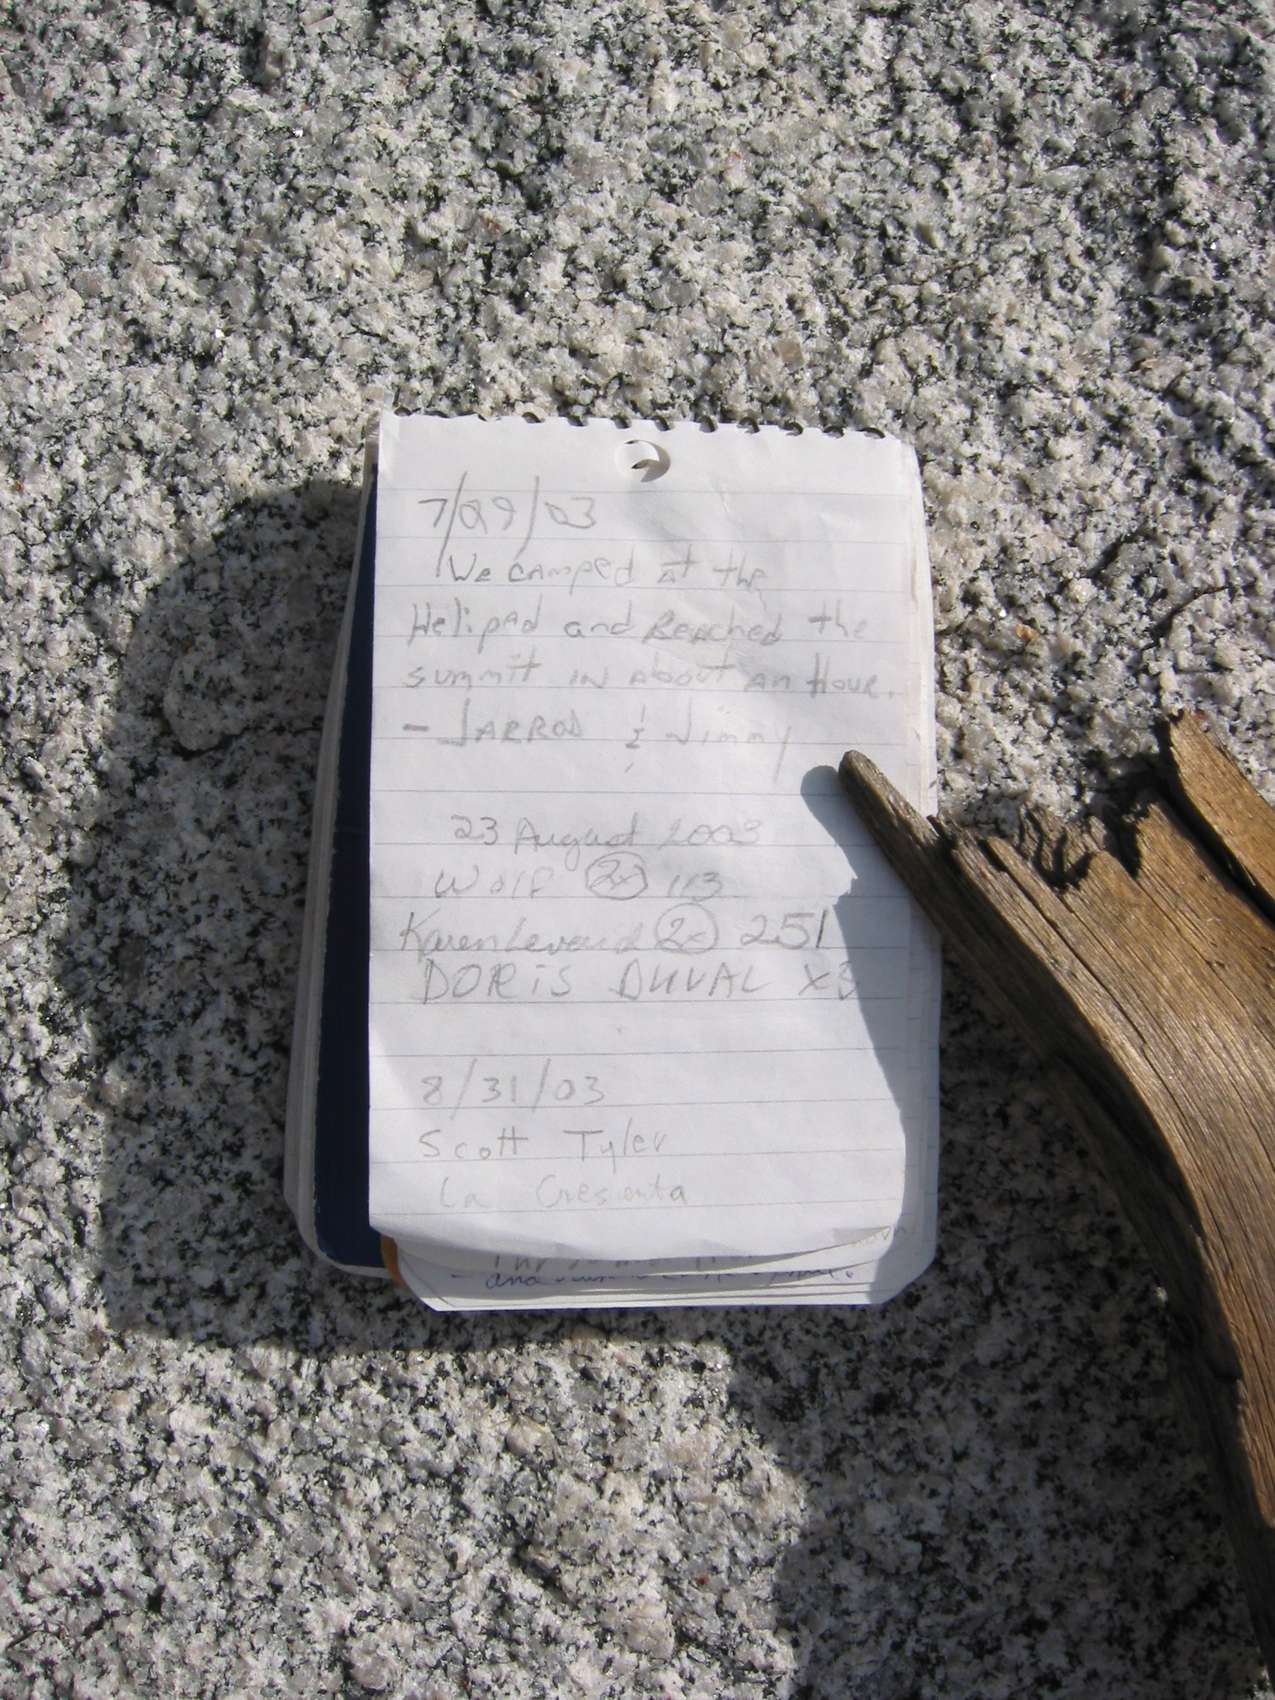 7/09/03
We camped at the
Helipad and Reached the
summit in about an Hour.
- JARROD & Jimmy
23 August 2003
Wolf 2x 113
Karen Leverich 2x 251
DORiS DUVAL x3
8/31/03
Scott Tyler
La Cresenta
and